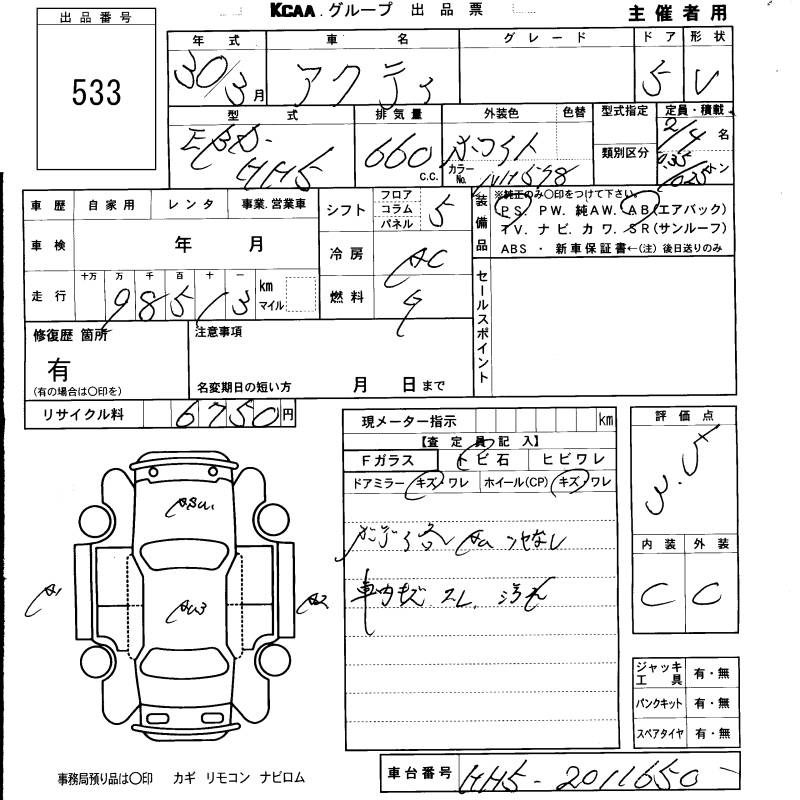 KCAA グループ 出品票
主催者用
出品番号
533
年式 車名 グレード ドア 形状
30/3月 アクティ 5 V
型式 排気量 外装色 色替 型式指定 定員・積載
EBD-HH5 660 C.C. ホワイト カラーNo. NH598 類別区分 2/4 名 0.35/0.25 トン
車歴 自家用 レンタ 事業.営業車
車検 年 月
走行 十万 万 千 百 十 一 km マイル
98513
シフト フロア コラム パネル 5
冷房 AC
燃料
装備品
※純正のみ○印をつけて下さい。
PS. PW. 純AW. AB(エアバック)
TV. ナビ. カワ. SR(サンルーフ)
ABS ・ 新車保証書←(注) 後日送りのみ
セールスポイント
修復歴 箇所
有
(有の場合は○印を)
注意事項
名変期日の短い方 月 日まで
リサイクル料 6750円
現メーター指示 km
【査定員記入】
Fガラス トビ石 ヒビワレ
ドアミラー キズ・ワレ ホイール(CP) キズ・ワレ
車内キズ スレ 汚れ
評価点
3.5
内装 外装
C C
A1
AU3
A2
ジャッキ工具 有・無
パンクキット 有・無
スペアタイヤ 有・無
事務局預り品は○印 カギ リモコン ナビロム
車台番号 HH5-2011650